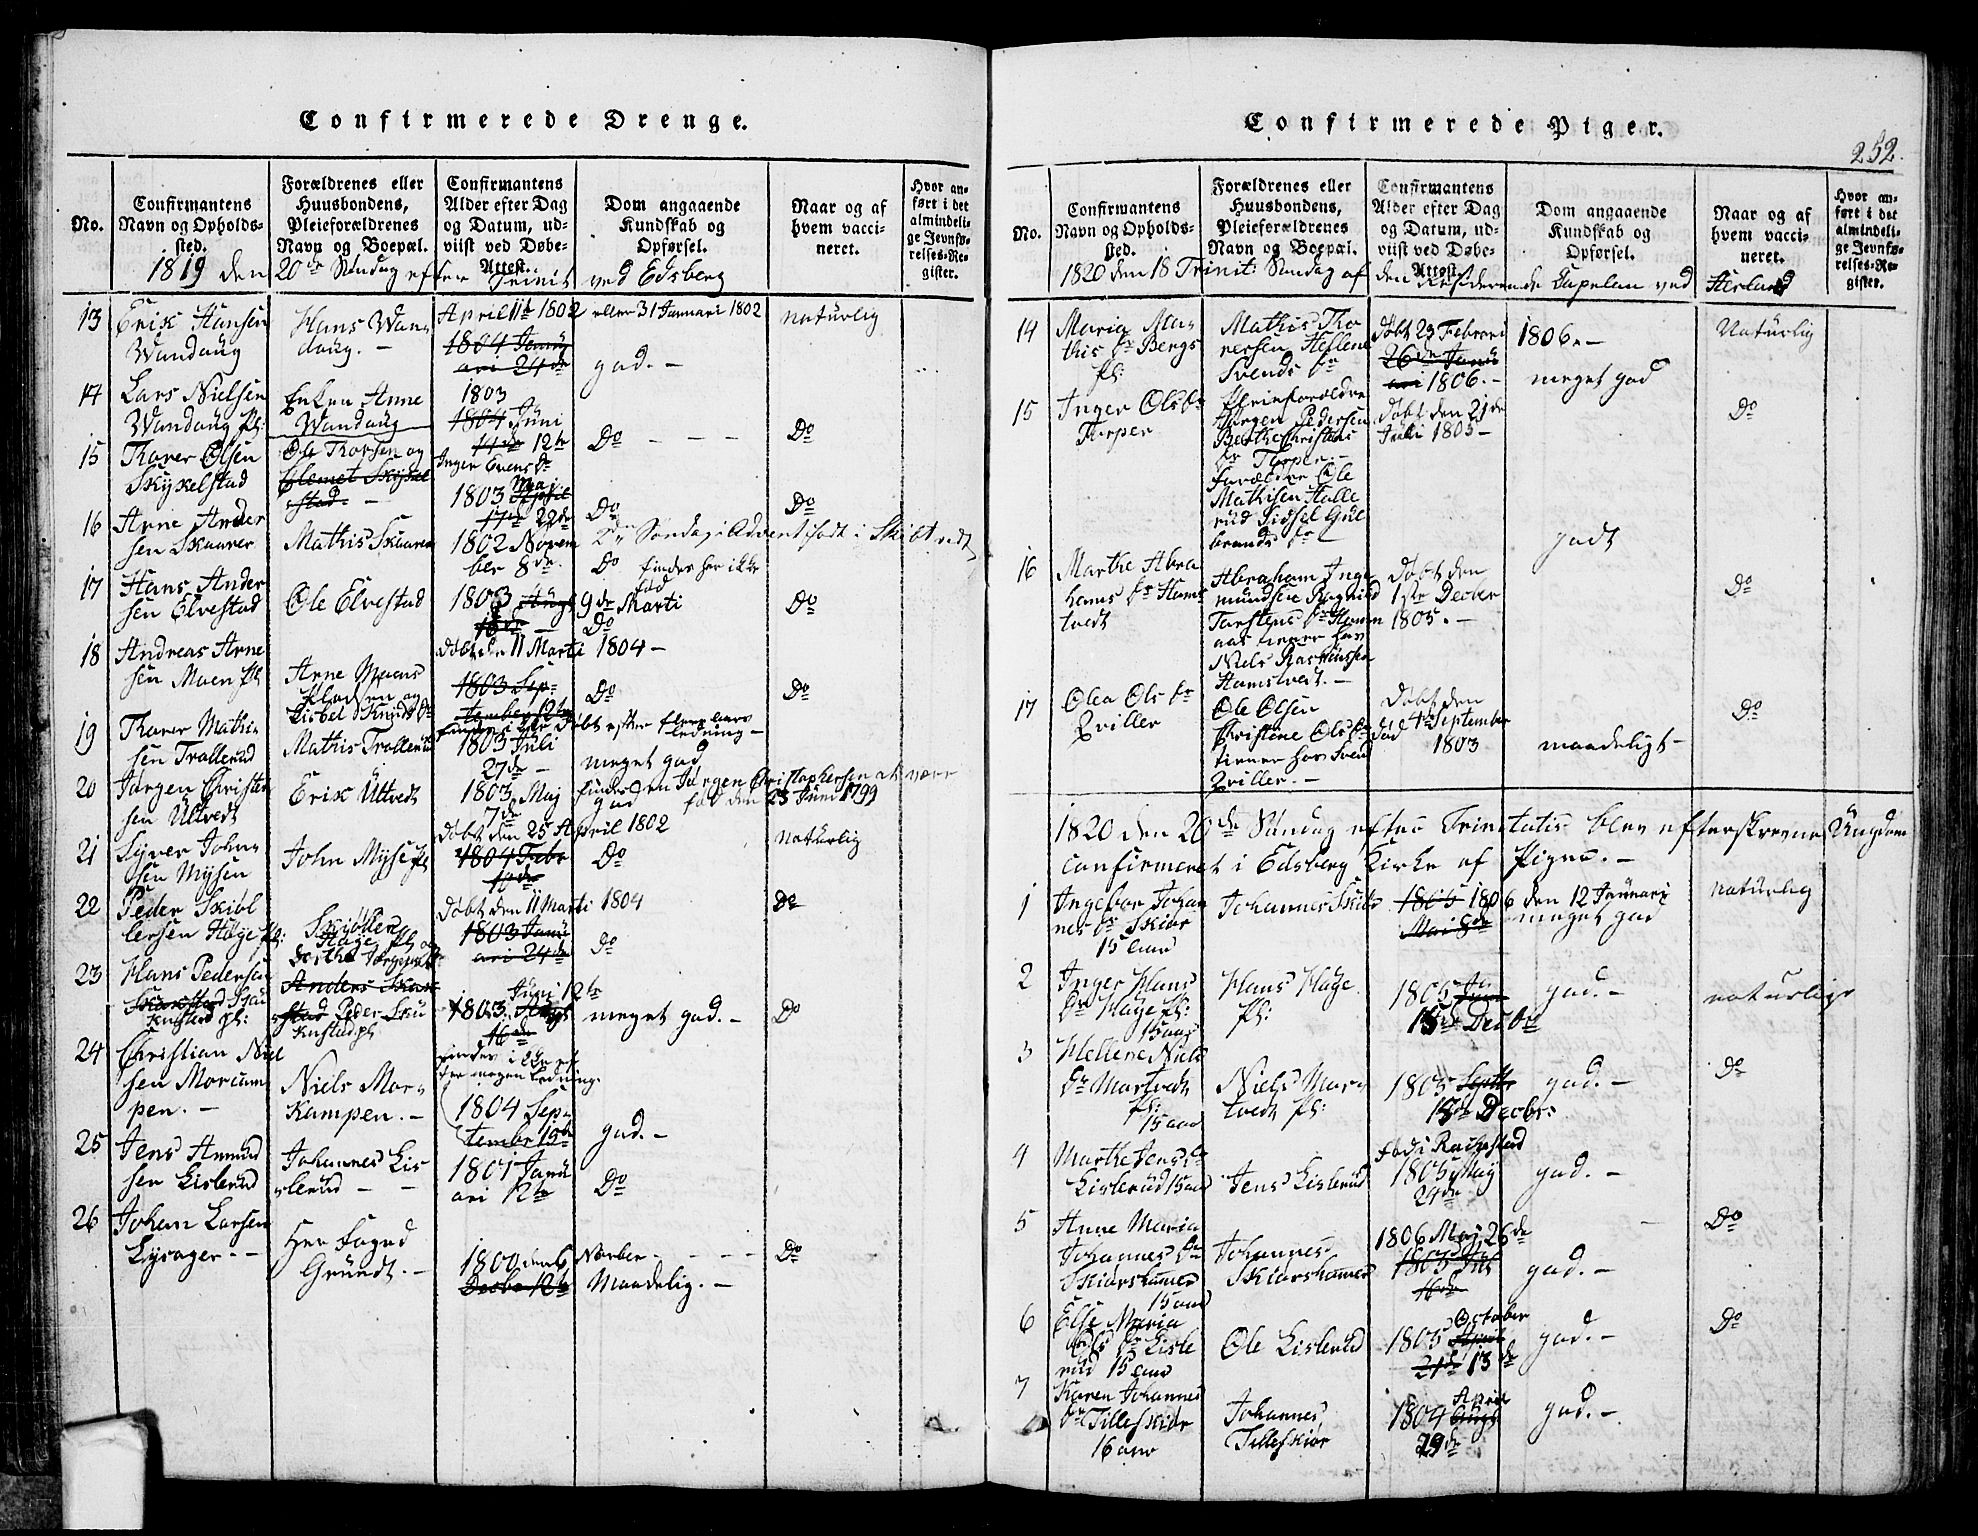 Confirmerede Drenge.
No.
Confirmantens
Navn og Opholds-
sted.
Forældrenes eller
Huusbondens,
Pleieforældrenes
Navn og Boepæl.
Confirmantens
Alder efter Dag
og Datum, ud-
viist ved Døbe-
Attest.
Dom angaaende
Kundskab og
Opførsel.
Naar og af
hvem vacci-
neret.
Hvor an-
ført i det
almindeli-
ge Jevnfø-
relses-Re-
gister.
1819 den 20de Søndag efter Trinit ved Edsberg
13 Erik Hansen
Wandaug
Hans Wan-
daug. -
April 11te 1802 eller 31 Januari 1802
1804 Janu
ari 24de
god. -
naturlig
14 Lars Nielsen
Wandaug pl:
Enken Anne
Wandaug
1803
1804 Juni
14de 12te
Do - - -
Do
15 Thorer Olsen
Skykelstad
Ole Thorsen og
Clemet Skykel
stad. -
Inger Evens Dr
1803 Maj
April
17de 22de
Do
Do
16 Arne Ander
sen Skaarer
Mathis Skaaren
1802 Novem
ber 8de.
2den Søndag i Advent født i Skibtvedt
Do findes her ikke
fød
17 Hans Ander
sen Elvestad
Ole Elvestad
1803 Augs 9de Marti
18de
Do
Do
18 Andreas Arne
sen Moen pl
Arne Moens
Pladsen og
Lisbel Knuds Dr
Døbt den 11 Marti 1804 -
1803 Sep-
tember 12te
Do
Do
19 Thorer Mathi-
sen Trollerud
Mathis Trollerud
1803 Juli
27de -
meget god
20 Jørgen Christen
sen Ultvedt
Erik Ultvedt
1803 Maj
7de
findes en Jørgen Christophersen at være
god fød den 23 Juni 1799
21 Syver John-
sen Mysen
John Myse pl
Døbt den 25 April 1802
1804 Febr
10de
Do
naturlig
22 Peder Skiøl
lersen Hage pl:
Skiøller
Hage pl og
Berthe
Døbt den 11 Marti 1804
1803 Janu
ari 24de
Do
Do
23 Hans Pedersen
Skakstad Skau
knstad pl:
Anders Skak
stad Peder Sku
knstad pl
Juni 12te
1803 Augs
16de
meget god. -
Do
24 Christian Niel
sen Morcam
pen. -
Niels Mor-
Kampen. -
1804 Sep-
tember 13de
god. -
25 Jens Amund
sen Lislerud
Johannes Lis
slerud - -
1801 Janu
ari 12te
Do
26 Johan Larsen
Lysager. -
Her Foged
Gründt. -
1800 den 6 Norber - - - -
Decbr 12te
Maadelig. -
Do
Confirmerede Piger.
252.
No.
Confirmantens
Navn og Opholds-
sted.
Forældrenes eller
Huusbondens,
Pleieforældrenes
Navn og Boepæl.
Confirmantens
Alder efter Dag
og Datum, ud-
viist ved Døbe-
Attest.
Dom angaaende
Kundskab og
Opførsel.
Naar og af
hvem vacci-
neret.
Hvor an-
ført i det
almindeli-
ge Jevnfø-
relses-Re-
gister.
1820 den 18 Trinit: Søndag af den Residerende Capelan ved Herland
14 Maria Ma-
this Dr Bergs
pl:
Mathis Tho
rersen Hellene
Svends Dr
døbt 23 Februari 1806. -
26de Janu
ari 1806. -
meget god
Naturlig
15 Inger Ols Dr
Torper
Pleieforældre
Jørgen Pedersen
Berthe Christens
Dr Torper. -
Forældre Ole
Mathisen Halle
rud Sidsel Gul
brands Dr -
Døbt den 21de
Juli 1805 -
godt
Do
16 Marthe Abra
hams Dr Hams
tvedt
Abraham Inge
mundsen Ragnild
Torstens Dr Hamn
aas tiener hos
Niels Rasmussen
Hamstvedt. -
Døbt den
1ste Decber
1805. -
Do
17 Olea Ols Dr
Qviller
Ole Olsen
Christine Ols Dr
tiener hos Svend
Qviller. -
Døbt den
4de September
1803
maadeligt -
Do
1820 den 20de Søndag efter Trinitatis blev efterskrevne Ungdom
confirmeret i Edsberg Kirke af Pigerne. -
1 Ingebor Johan
nes Dr Skiør
15 aar
Johannes Skiør
1805 1806 den 12 Januari
Mai 8de
meget god
naturlig
2 Inger Hans
Dr Hage pl:
15 aar
Hans Hage
pl:
1805
15de Decbr
god. -
naturlige
3 Hellene Niels
Dr Martvedt
pl:
15 aar
Niels Mar-
tvedt pl:
1805 Septbr
15de Decbr:
god. -
Do
4 Marthe Jens Dr
Lislerud 15 aar
Jens Lislerud
Fød i Rackestad
1805 Maj
24de
god. -
5 Anne Maria
Johannes Dr
Skiørshamer
15 aar
Johannes
Skiørshamer
1806 Maj 26de
1805 Juli
16de
god. -
Do
6 Else Maria
Ols Dr Lisle
rud 15 aar
Ole Lislerud
October
1805 April
21de 13de
god. -
Do
7 Karen Johannes
Dr Tillefskiør
16 aar
Johannes
Tillefskiør
April
1804 Augs
29de
god. -